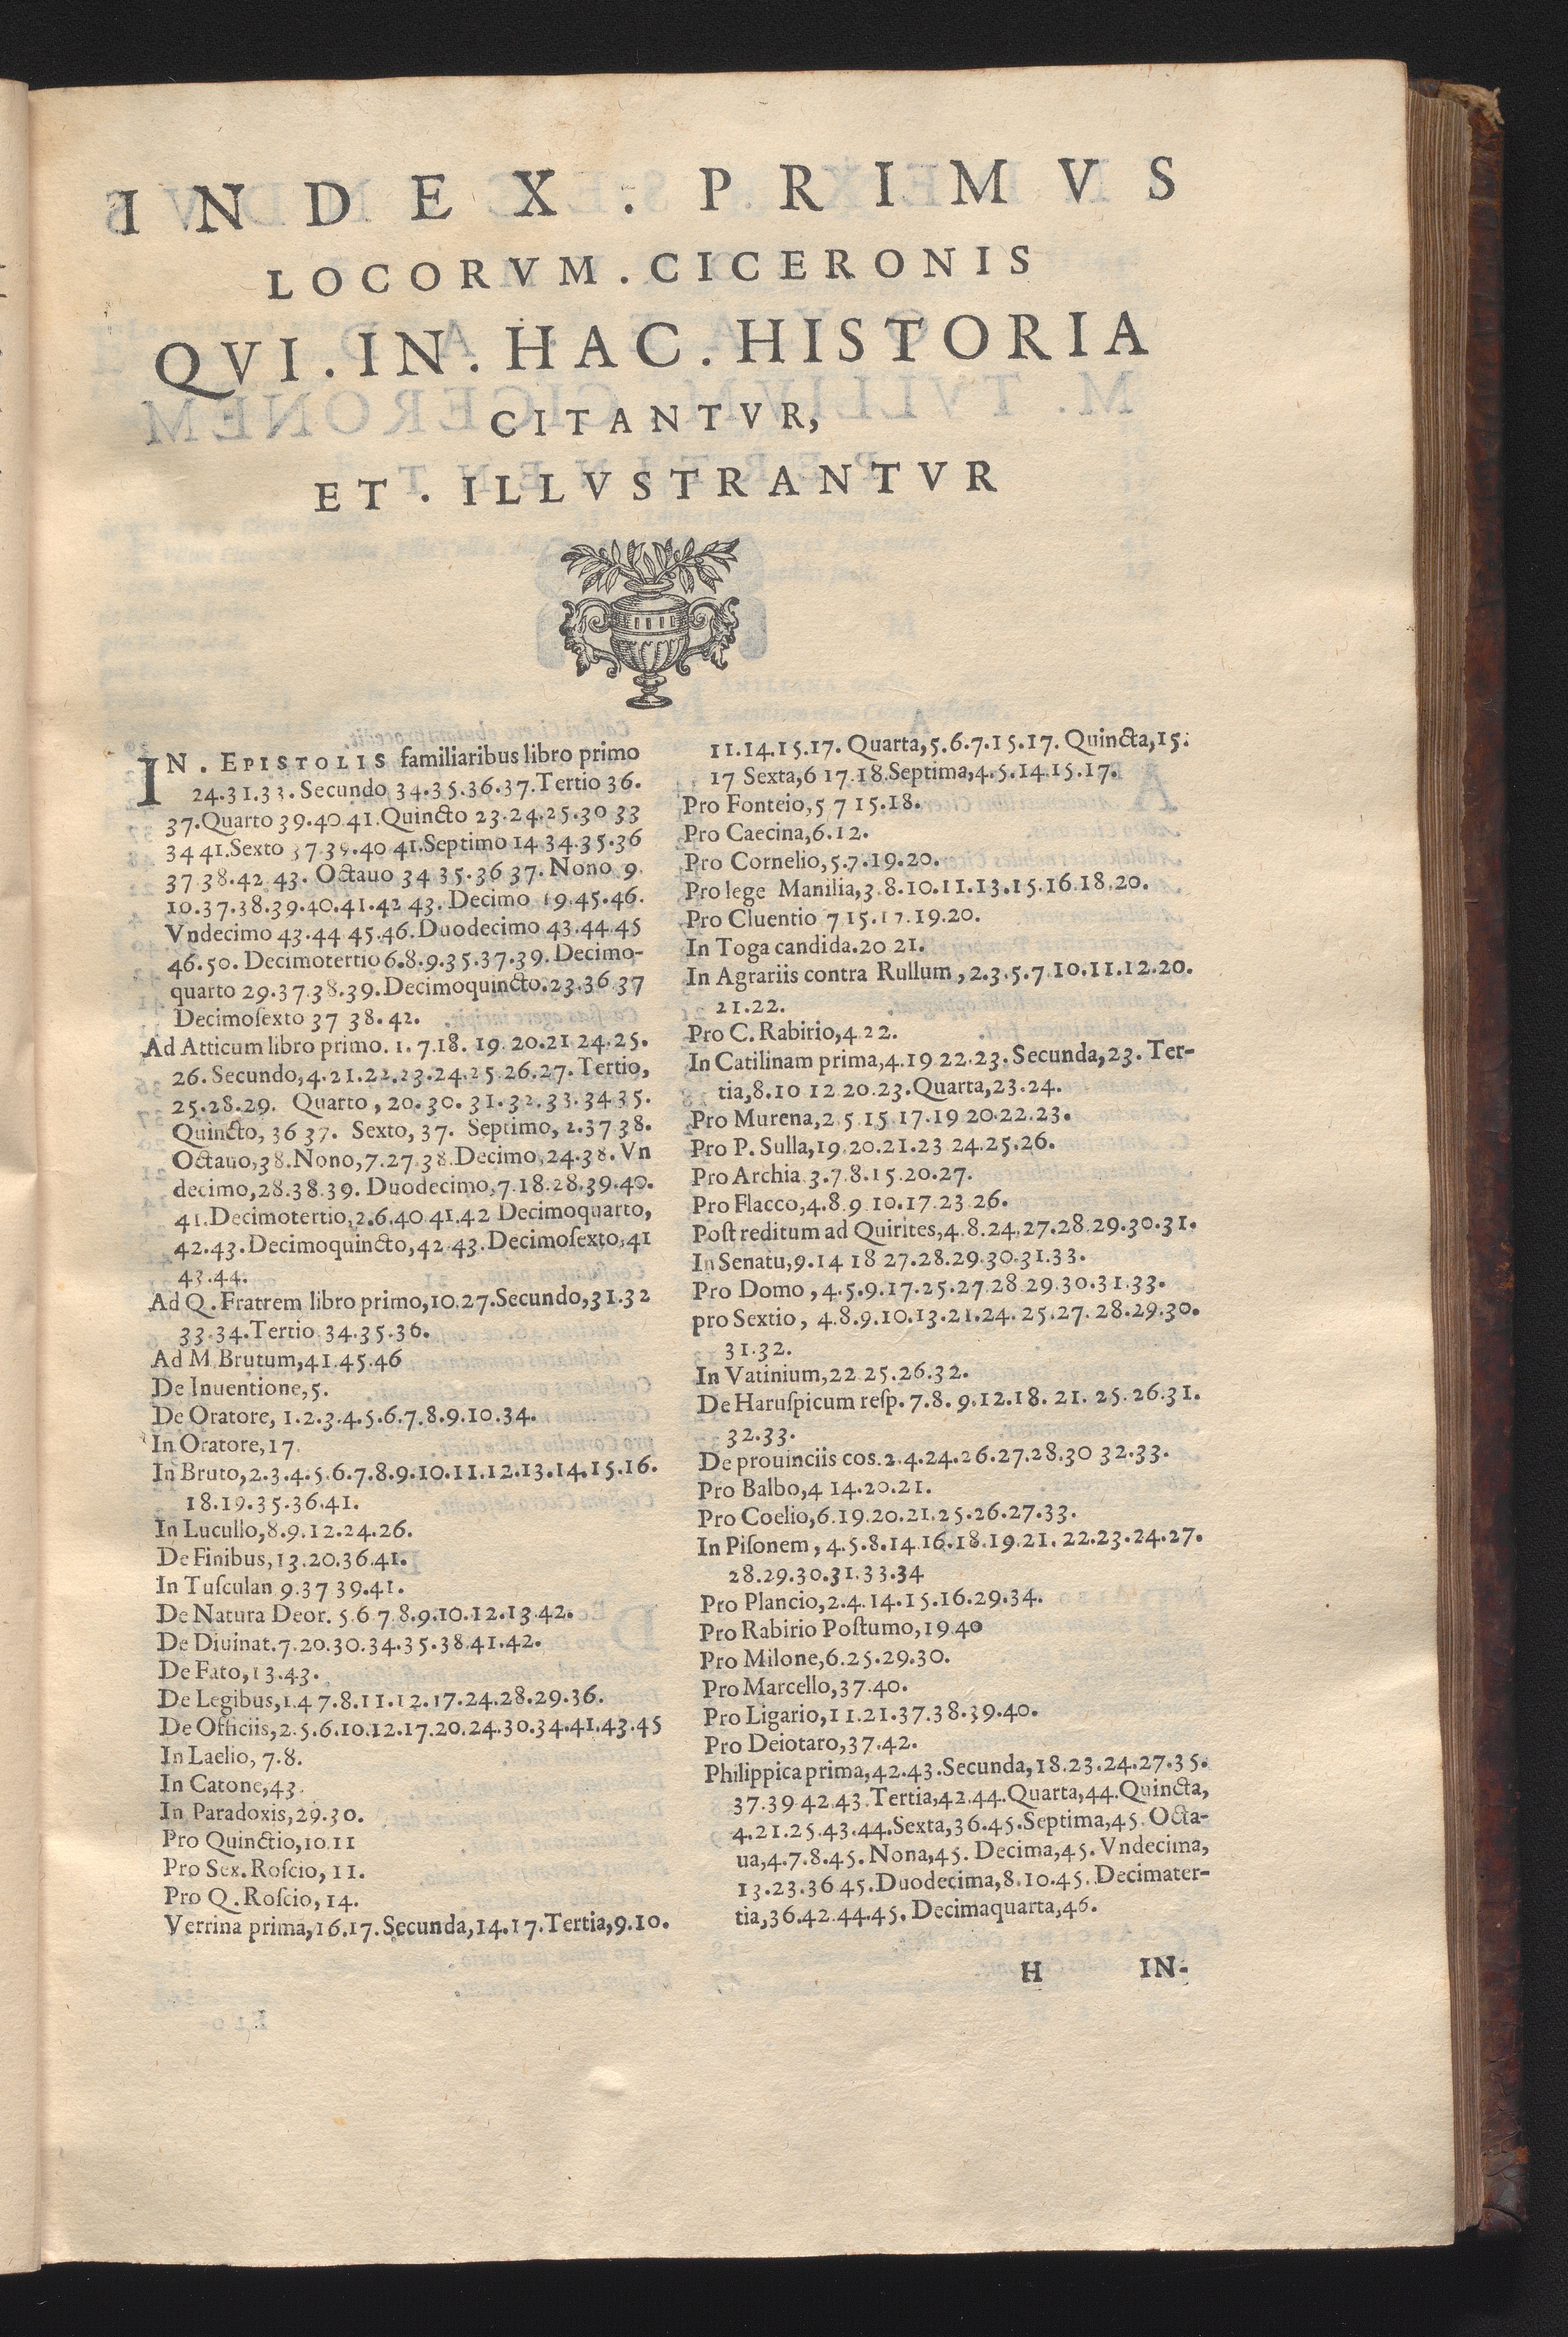 INDEX. PRIMVS
LOCORVM. CICERONIS
QVI. IN. HAC. HISTORIA
CITANTVR,
ET. ILLVSTRANTVR
IN. EPISTOLIS familiaribus libro primo
24.31.33. Secundo 34.35.36.37. Tertio 36.
37. Quarto 39.40 41. Quincto 23.24.25.30 33
34 41. Sexto 37.39.40 41. Septimo 14 34.35.36
37 38.42 43. Octauo 34 35.36 37. Nono 9.
10.37.38.39.40.41.42 43. Decimo 19.45.46.
Vndecimo 43.44 45.46. Duodecimo 43.44.45
46.50. Decimotertio 6.8.9.35.37.39. Decimo-
quarto 29.37.38.39. Decimoquincto. 23.36 37
Decimoſexto 37 38.42.
Ad Atticum libro primo. 1.7.18. 19. 20.21 24.25.
26. Secundo, 4.21.22.23.24.25.26.27. Tertio,
25.28.29. Quarto, 20.30.31.32.33.34 35.
Quincto, 36 37. Sexto, 37. Septimo, 2.37 38.
Octauo, 38. Nono, 7.27.38. Decimo, 24.38. Vn
decimo, 28.38.39. Duodecimo, 7.18.28.39.40.
41. Decimotertio, 2.6.40 41.42 Decimoquarto,
42.43. Decimoquincto, 42 43. Decimoſexto, 41
43.44.
Ad Q. Fratrem libro primo, 10.27. Secundo, 31.32
33.34. Tertio 34.35.36.
Ad M Brutum, 41.45.46
De Inuentione, 5.
De Oratore, 1.2.3.4.5.6.7.8.9.10.34.
In Oratore, 17.
In Bruto, 2.3.4.5.6.7.8.9.10.11.12.13.14.15.16.
18.19.35.36.41.
In Lucullo, 8.9.12.24.26.
De Finibus, 13.20.36.41.
In Tuſculan 9.37 39.41.
De Natura Deor. 5 6 7 8.9.10.12.13.42.
De Diuinat. 7.20.30.34.35.38 41.42.
De Fato, 13.43.
De Legibus, 1.4 7.8.11.12.17.24.28.29.36.
De Officiis, 2.5.6.10.12.17.20.24.30.34.41.43.45
In Laelio, 7.8.
In Catone, 43.
In Paradoxis, 29.30.
Pro Quinctio, 10.11
Pro Sex. Roſcio, 11.
Pro Q. Roſcio, 14.
Verrina prima, 16.17. Secunda, 14.17. Tertia, 9.10.
11.14.15.17. Quarta, 5.6.7.15.17. Quincta, 15.
17 Sexta, 6 17.18. Septima, 4.5.14.15.17.
Pro Fonteio, 5 7 15.18.
Pro Caecina, 6.12.
Pro Cornelio, 5.7.19.20.
Pro lege Manilia, 3.8.10.11.13.15.16.18.20.
Pro Cluentio 7 15.17.19.20.
In Toga candida. 20 21.
In Agrariis contra Rullum, 2.3.5.7 10.11.12.20.
21.22.
Pro C. Rabirio, 4 22.
In Catilinam prima, 4.19 22.23. Secunda, 23. Ter-
tia, 8.10 12 20.23. Quarta, 23.24.
Pro Murena, 2 5 15 17.19 20.22.23.
Pro P. Sulla, 19.20.21.23 24.25.26.
Pro Archia 3.7.8.15.20.27.
Pro Flacco, 4.8.9 10.17.23 26.
Poſt reditum ad Quirites, 4 8.24.27.28.29.30.31.
In Senatu, 9.14 18 27.28.29.30.31.33.
Pro Domo, 4.5.9.17.25.27 28 29.30.31.33.
pro Sextio, 4.8.9.10.13.21.24. 25.27. 28.29.30.
31.32.
In Vatinium, 22 25.26.32.
De Haruſpicum reſp. 7.8. 9.12.18. 21. 25. 26.31.
32.33.
De prouinciis cos. 2.4.24.26.27.28.30 32.33.
Pro Balbo, 4 14.20.21.
Pro Coelio, 6.19.20.21.25.26.27.33.
In Piſonem, 4.5.8.14 16.18.19.21. 22.23.24.27.
28.29.30.31.33.34
Pro Plancio, 2.4.14.15.16.29.34.
Pro Rabirio Poſtumo, 19 40
Pro Milone, 6.25.29.30.
Pro Marcello, 37.40.
Pro Ligario, 11.21.37.38.39.40.
Pro Deiotaro, 37.42.
Philippica prima, 42.43. Secunda, 18.23.24.27.35.
37.39 42 43. Tertia, 42.44. Quarta, 44. Quincta,
4.21.25.43.44. Sexta, 36.45. Septima, 45. Octa-
ua, 4.7.8.45. Nona, 45. Decima, 45. Vndecima,
13.23.36 45. Duodecima, 8.10.45. Decimater-
tia, 36.42.44.45. Decimaquarta, 46.
H IN-